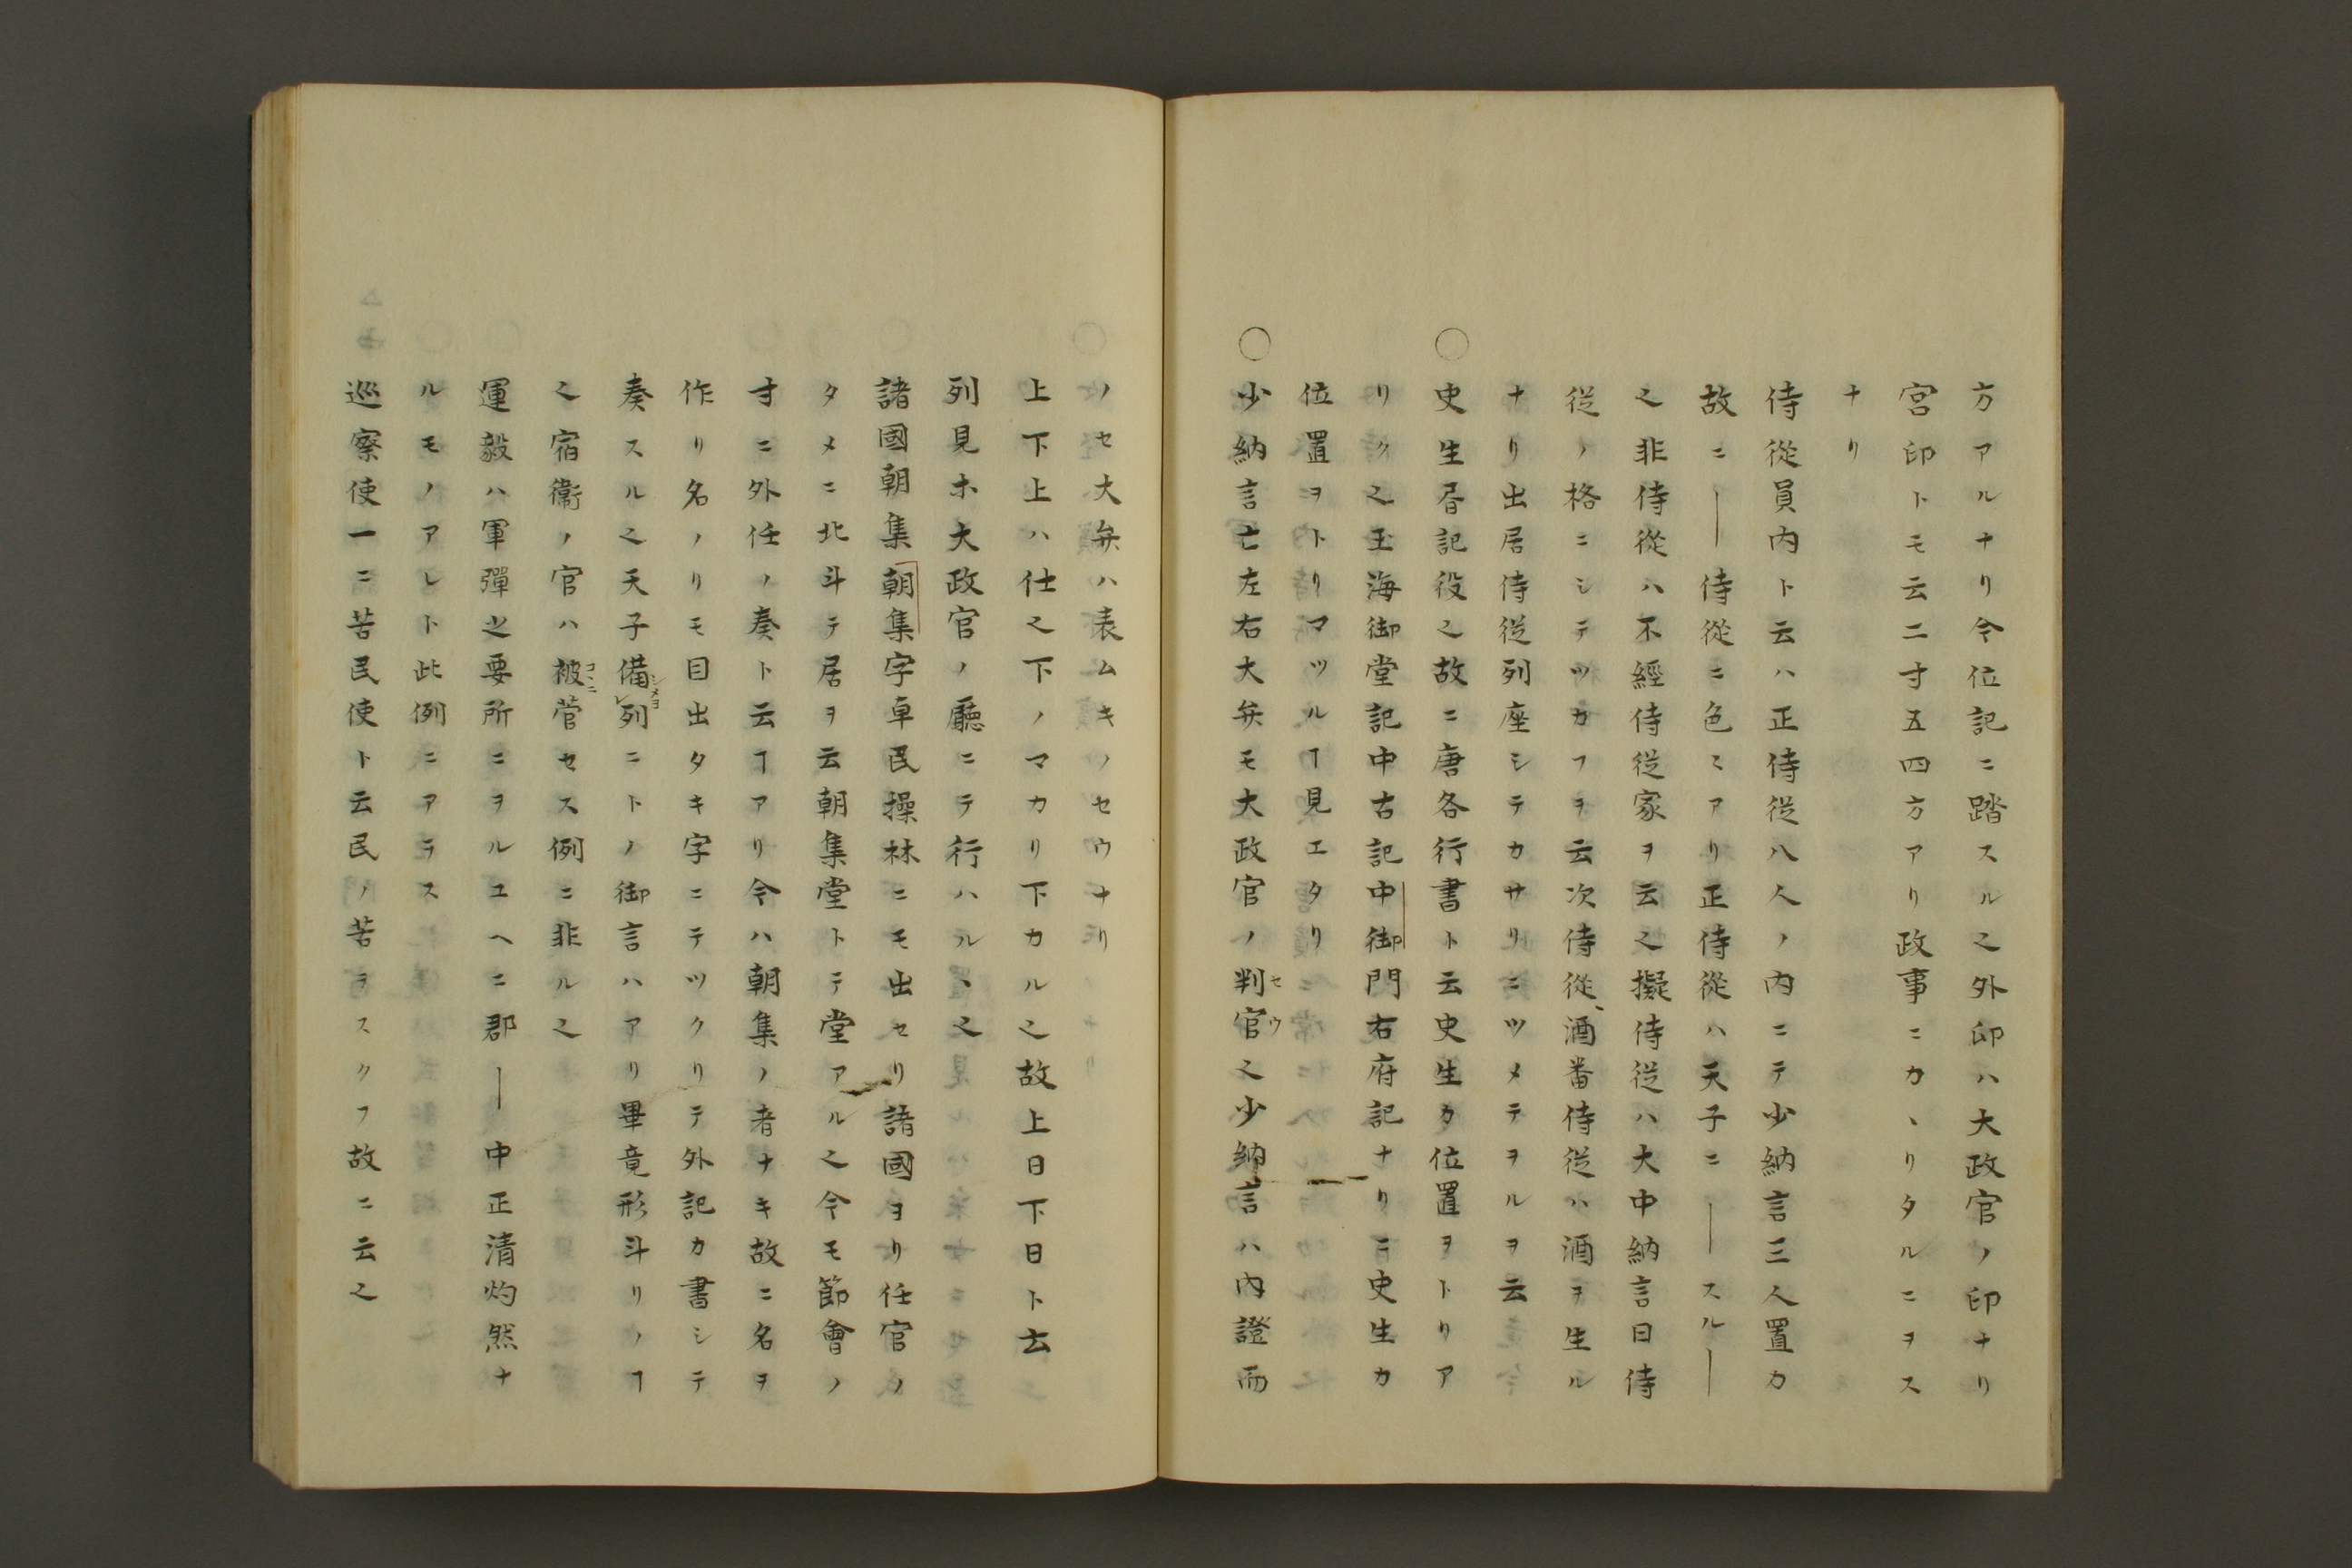 方アルナリ令位記ニ踏スル之外印ハ大政官ノ印ナリ
宮印トモ云二寸五四方アリ政事ニカヽリタルニヲス
ナリ
侍從員内ト云ハ正侍從八人ノ内ニテ少納言三人置カ
故ニ――侍從ニ色ミアリ正侍從ハ天子ニ――スル―
之非侍從ハ不經侍從家ヲ云之擬侍從ハ大中納言日侍
從ノ格ニシテツカフヲ云次侍從、酒番侍從ハ酒ヲ生ル
ナリ出居侍從列座シテカサリニツメテヲルヲ云
○史生㫺記役之故ニ唐各行書ト云史生カ位置ヲトリア
リク之玉海御堂記中古記中御門右府記ナリニ史生カ
位置ヲトリマツルヿ見エタリ
○少納言亡左右大弁モ大政官ノ判官セウ之少納言ハ内證而
ノセ大弁ハ表ムキノセウナリ
上下下上ハ仕之下ノマカリ下カル之故上日下日ト云
列見ホ大政官ノ廳ニテ行ハルヽ之
諸國朝集朝集字卓民操林ニモ出セリ諸國ヨリ任官ノ
タメニ北斗テ居ヲ云朝集堂トテ堂アル之今モ節會ノ
寸ニ外任ノ奏ト云ヿアリ令ハ朝集ノ者ナキ故ニ名ヲ
作リ名ノリモ目出タキ字ニテツクリテ外記カ書シテ
奏スル之天子備列シメヨレニトノ御言ハアリ畢竟形斗リノヿ
之宿衞ノ官ハ被菅コヽニセス例ニ非ル之
運毅ハ軍彈之要所ニヲルユヘニ郡――中正清灼然ナ
ルモノアレト此例ニアラス
巡察使一ニ苦民使ト云民ノ苦ヲスクフ故ニ云之